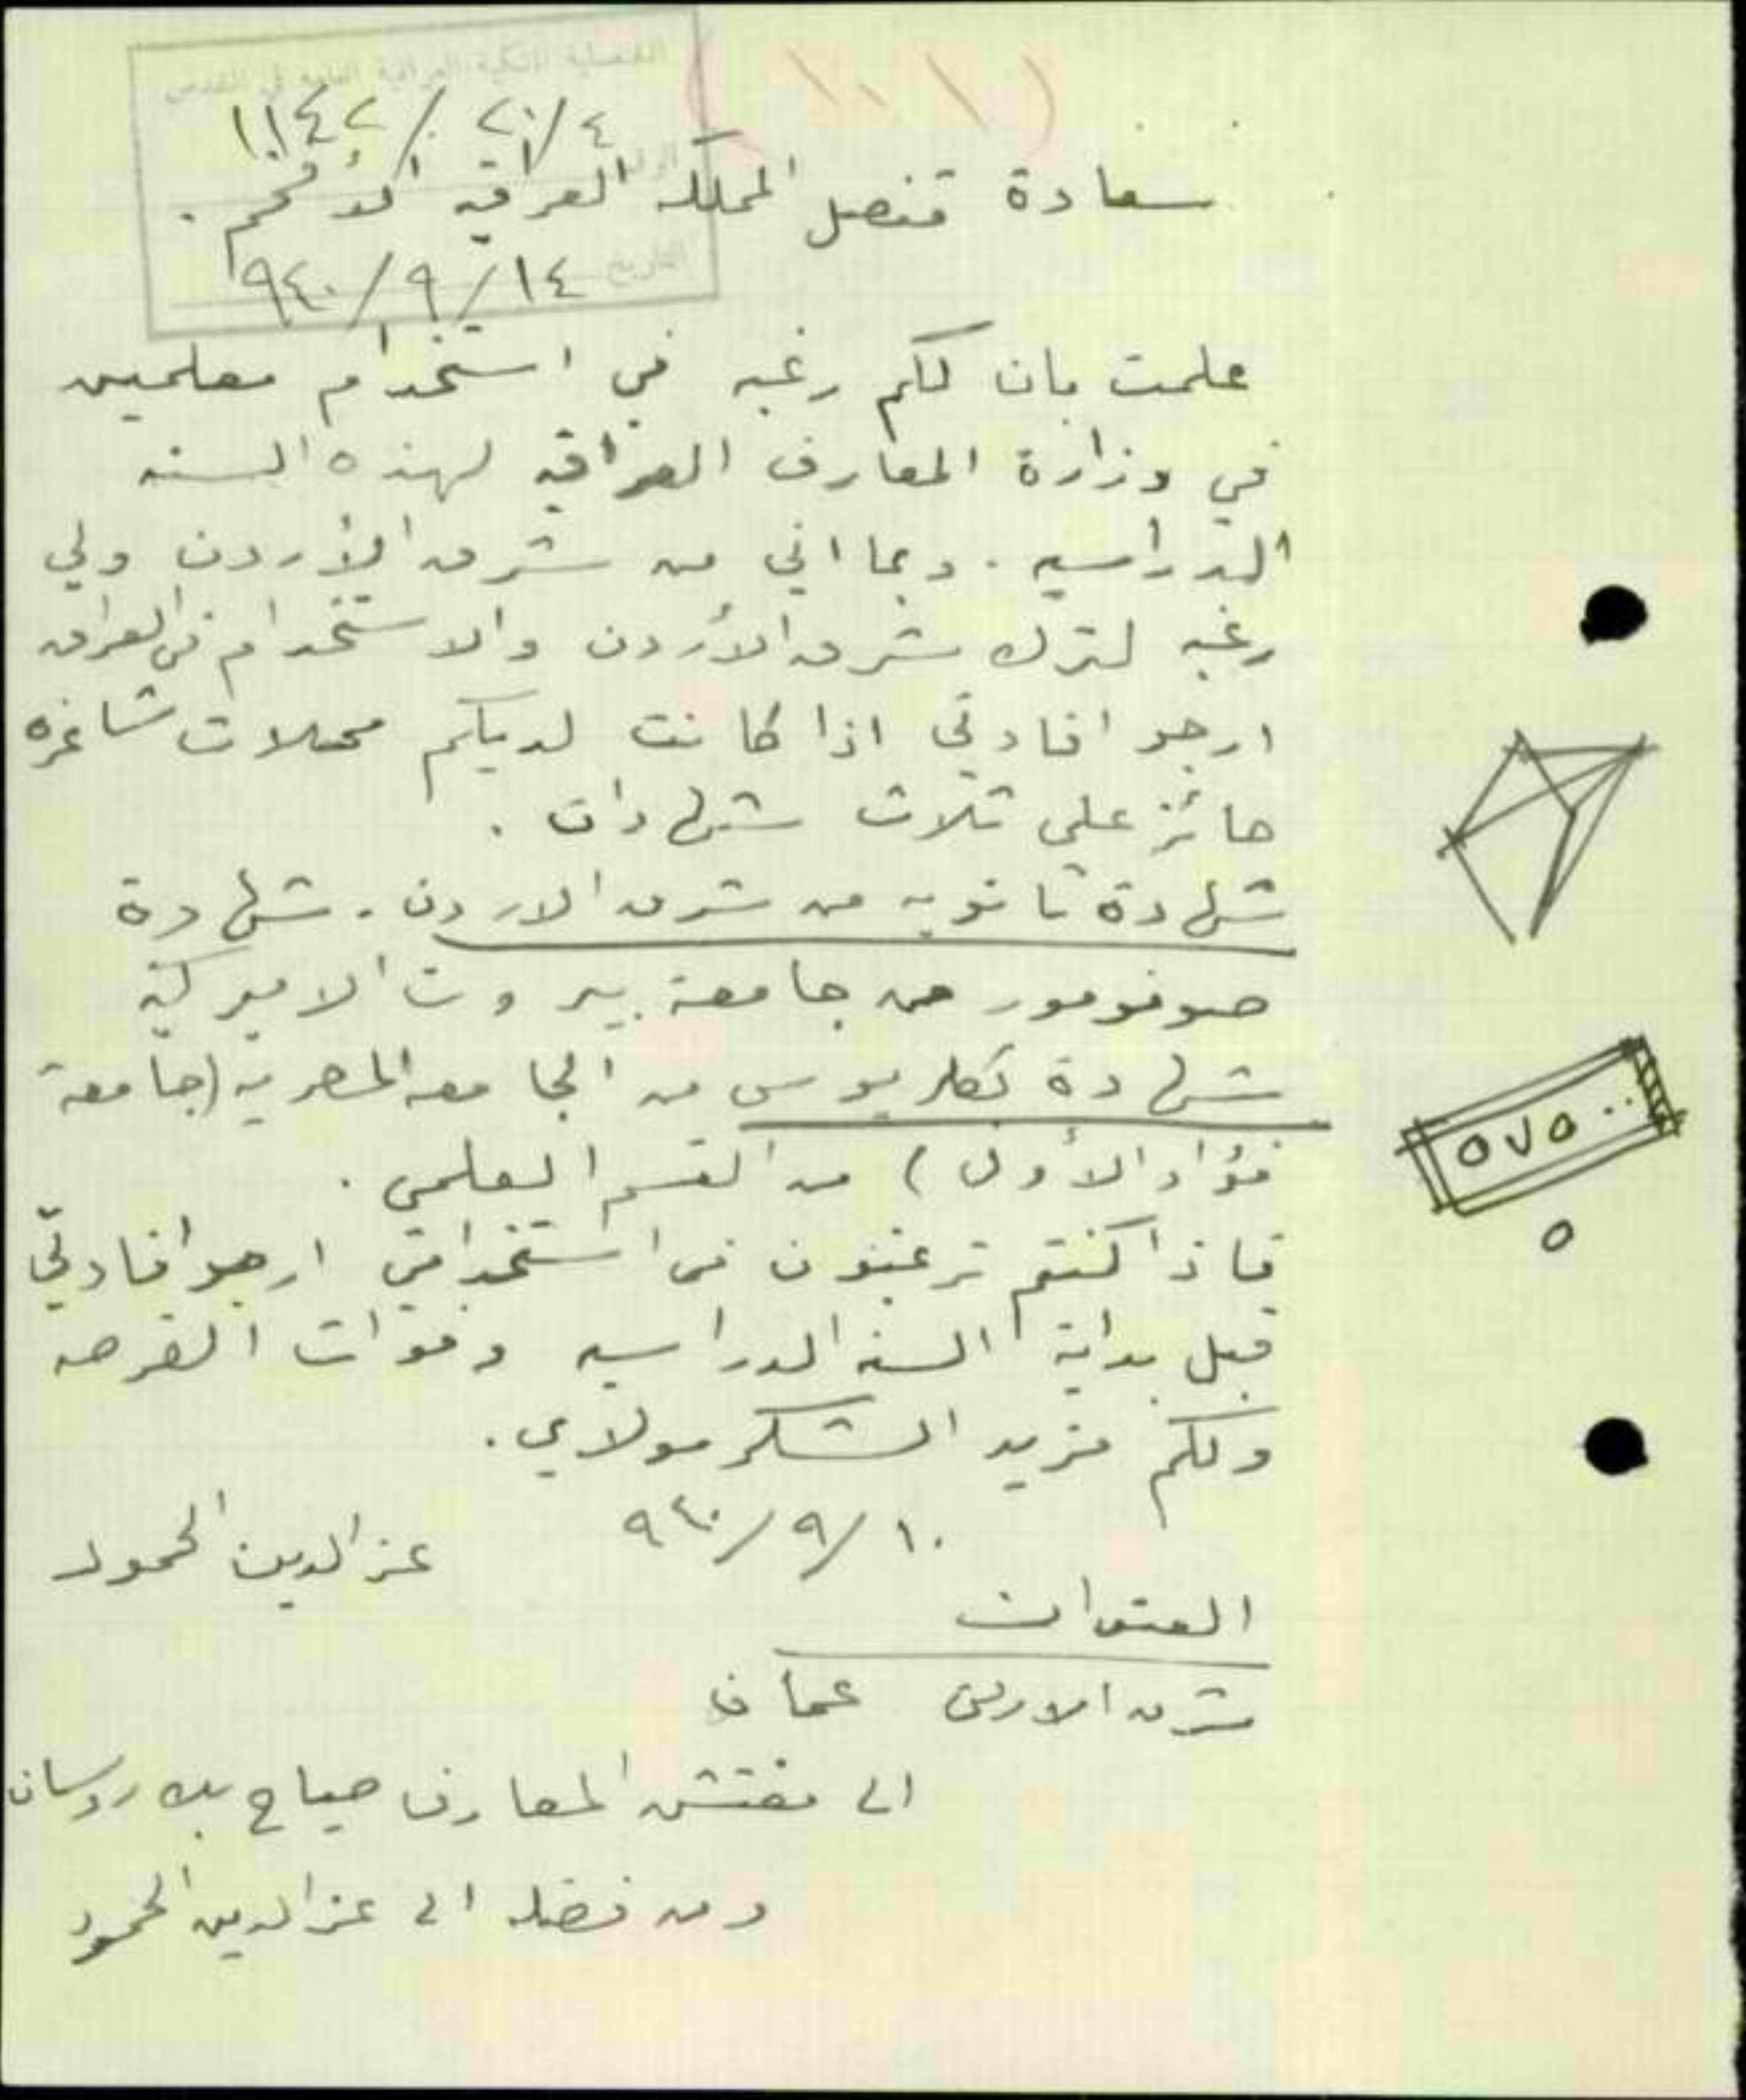 القنصلية الملكية العراقية العامة في القدس
١١٤٢/٢٠/٤
سعادة قنصل المملكه العراقيه الأفخم .
التاريخ ٩٤٠/٩/١٤
علمت بان لكم رغبه في استخدام معلمين
في وزارة المعارف العراقيه لهذه السنه
الدراسيه . وبما اني من شرق الأردن ولي
رغبه لترك شرق الأردن والاستخدام في العراق
ارجو افادتي اذا كانت لديكم محلات شاغره
حائز على ثلاث شهادات .
شهادة ثانويه من شرق الاردن . شهادة
صوفومور من جامعة بيروت الاميركية
شهادة بكلريوس من الجامعه المصريه (جامعة
فؤاد الأول) من القسم العلمي .
فاذا كنتم ترغبون في استخدامي ارجو افادتي
قبل بداية السنه الدراسيه وفوات الفرصه
ولكم مزيد الشكر مولاي .
٩٤٠/٩/١٠
عز الدين الحمود
العنوان
شرق الاردن عمان
الى مفتش المعارف صياح بك روسان
ومن فضله الى عز الدين الحمود
٥٧٥٠٠
٥